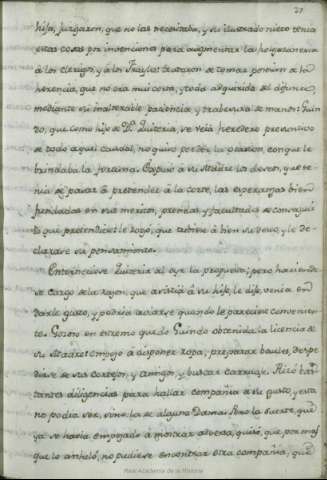 37
hijo, juzgaron, que no las necesitaba, y su ilustrado nieto tenia
estas cosas por invenciones para augmentar la
à los clerigos, y à los Frayles: trataron de tomar posesion de la
herencia, que no era mui corta, y toda adquirida del difunto,
mediante su inalterable paciencia, y trabesura de manos: Guin
do, que como hijo de Dª Quiteria, se veìa heredero presuntivo
de todo aquel caudal, no quiso perder la ocasion, con que le
brindaba la fortuna. Expuso à su Madre los deseos, que te-
nia de pasar à pretender à la corte, las esperanzas bien
fundadas en sus meritos, prendas, y facultades de conseguir
lo que pretendiese: le rogò, que tubiese à bien su, y le de-
clarase su pensamiento.
Enterneciose Quiteria al oir la propuesta; pero haciendo
se cargo de la razon, que asistia à su hijo, le dijo, venia en
darle gusto, y podria aviarse quando le pareciese convenien-
te. Gozoso en extremo quedò Guindo obtenida la licencia de
su Madre: empezò à disponer ropa, preparar baules, despe
dirse de sus cortejos, y amigos, y buscar carruaje. Hizo bas
tantes diligencias para hallar compañia à su gusto, y esta
no podia ser, sino la de alguna Dama: Pero la suerte, que
ya se havia empezado à mostrar adversa, quiso, que por mas
que lo anhelò, no pudiese encontrar otra compañia, que
Real Academia de la Historia